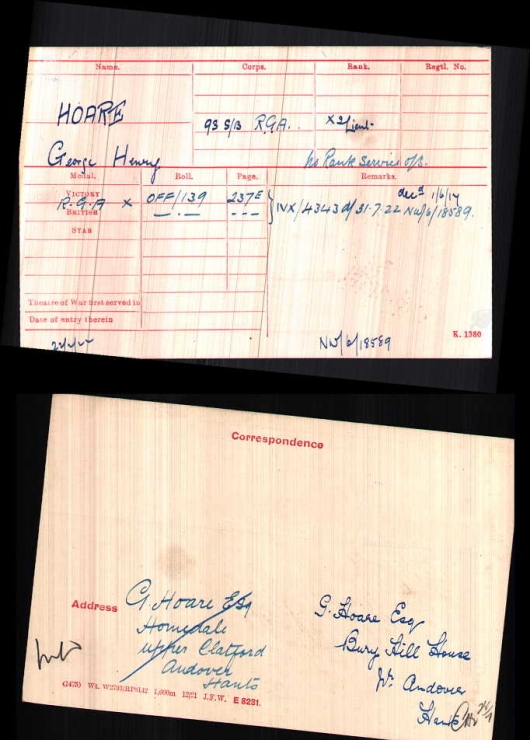 Name. Corps. Rank. Regtl. No.
HOARE
93 S/B R.G.A. X 2/Lieut.
George Henry
No Rank Service o/s.
Medal. Roll. Page. Remarks.
decd 1/6/17
VICTORY
R.G.A X OFF/139 237E IVX/4343 d/ 31.7.22 NW/6/18589.
BRITISH
STAR
Theatre of War first served in
Date of entry therein
K. 1380
NW/6/18589
Correspondence
Address
G. Hoare Esq
Homedale
upper Clatford
Andover
Hants
G. Hoare Esq
Bury Hill House
Nr. Andover
Hants
E 8231.